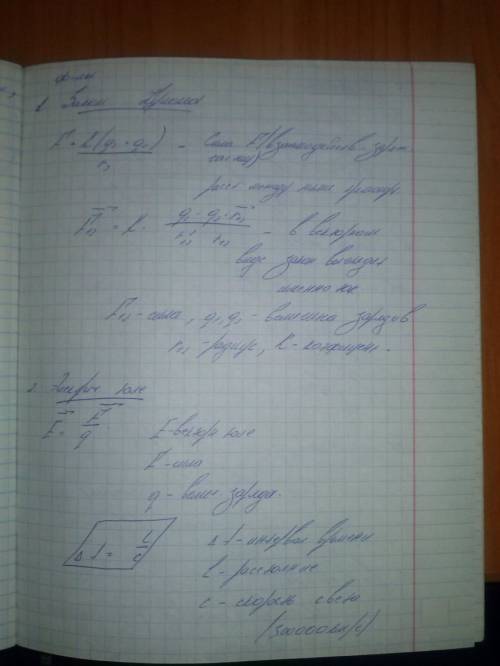 ф-лы
1 Закон Кулона
F = K(q1 · q2) / r1 - Сила F (взаимодейств-заряж
частиц)
расст между ними
F12 = K · q1 · q2 · r12 / r12 · r12 - в векторном
виде закон выглядит
именно так
F12 - сила, q1 q2 - величина зарядов
r12 - радиус, K - коэфициент.
2. Электрич поле
E = F / q E - вектор поле
F - сила
q - велич. заряда.
Δ t = l / c Δ t - интервал времени
l - расстояние
c - скорость света
(300000км/с)